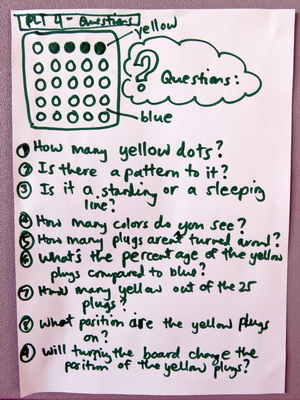 PLT 4 - Questions
yellow
? Questions:
blue
1 How many yellow dots?
2 Is there a pattern to it?
3 Is it a standing or a sleeping
line?
4 How many colors do you see?
5 How many plugs arent turned around?
6 What's the percentage of the yellow
plugs compared to blue?
7 How many yellow out of the 25
plugs?
8 What position are the yellow plugs
on?
9 Will turning the board change the
position of the yellow plugs?